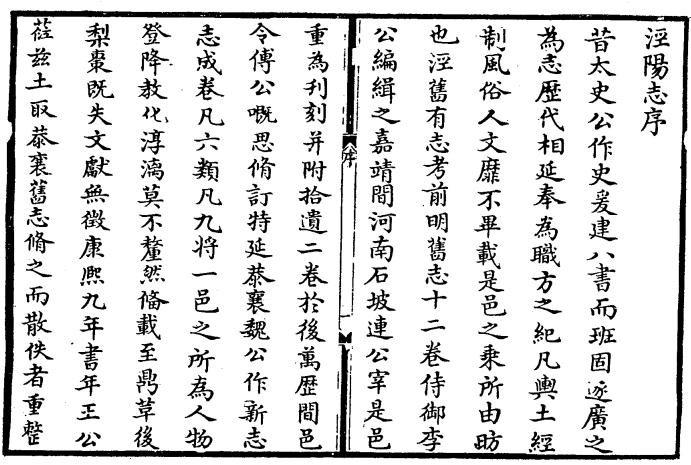 涇陽志序
昔太史公作史爰建八書而班固遂廣之
為志歷代相延奉為職方之紀凡輿土經
制風俗人文靡不畢載是邑之乘所由昉
也涇舊有志考前明舊志十二卷侍御李
公編緝之嘉靖間河南石坡連公宰是邑
序
重為刋刻并附拾遺二卷於後萬歷間邑
令傅公嘅思脩訂特延恭襄魏公作新志
志成卷凡六類凡九將一邑之所為人物
登降教化淳漓莫不釐然偹載至鼎草後
梨棗既失文獻無徵康熙九年書年王公
蒞茲土取恭襄舊志脩之而散佚者重整